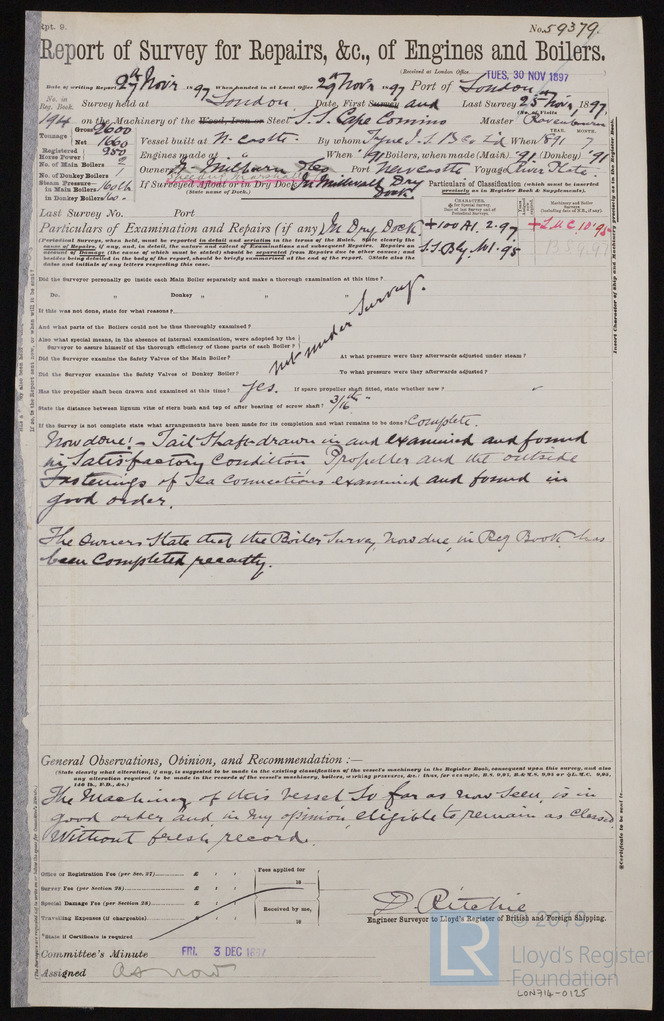 Rpt. 9.
No. 59379.
Report of Survey for Repairs, &c., of Engines and Boilers.
(Received at London Office TUES. 30 NOV 1897)
Date of writing Report 27th Novr 1897 When handed in at Local Office 29 Novr 1897 Port of London
No. in Reg. Book.
Survey held at London Date, First Survey and Last Survey 25th Novr 1897
(No. of Visits
194 on the Machinery of the Wood, Iron or Steel S.S. Cape Comino Master
Tonnage Gross 2600
Net 1660
Vessel built at N. Castle By whom Tyne I. S. B Co Ld When 1891 7
YEAR. MONTH.
Registered Horse Power 250
Engines made at " When '91 Boilers, when made (Main) '91 (Donkey) '91
No. of Main Boilers 2
No. of Donkey Boilers 1
Owners Milburn & Co Port Newcastle Voyage River Plate.
Steam Pressure in Main Boilers 160 lb
in Donkey Boilers
If Surveyed Afloat or in Dry Dock In Millwall Dry Dock.
(State name of Dock.)
Particulars of Classification (which must be inserted precisely as in Register Book & Supplements).
Last Survey No. Port
Particulars of Examination and Repairs (if any) In Dry Dock
+100A1. 2.97
+L.M.C. 10.95
S.S. No1-95
(Periodical Surveys, when held, must be reported in detail and seriatim in the terms of the Rules. State clearly the
cause of Repairs, if any, and, in detail, the nature and extent of Examinations and subsequent Repairs. Repairs on
account of Damage (the cause of which must be stated) should be separated from Repairs due to other causes; and
besides being detailed in the body of the report, should be briefly summarised at the end of the report. State also the
dates and initials of any letters respecting this case.
Did the Surveyor personally go inside each Main Boiler separately and make a thorough examination at this time?
Do. " Donkey " " " "
If this was not done, state for what reasons?
And what parts of the Boilers could not be thus thoroughly examined?
Also what special means, in the absence of internal examination, were adopted by the
Surveyor to assure himself of the thorough efficiency of those parts of each Boiler?
not under Survey.
Did the Surveyor examine the Safety Valves of the Main Boiler? At what pressure were they afterwards adjusted under steam?
Did the Surveyor examine the Safety Valves of Donkey Boiler? To what pressure were they afterwards adjusted?
Has the propeller shaft been drawn and examined at this time? Yes. If spare propeller shaft fitted, state whether new?
State the distance between lignum vitæ of stern bush and top of after bearing of screw shaft? 3/16"
If the Survey is not complete state what arrangements have been made for its completion and what remains to be done? Complete.
Now done:- Tail Shaft drawn in and examined and found
in Satisfactory Condition, Propeller and the outside
Fastenings of Sea Connections examined and found in
good order.
The Owners State that the Boiler Survey, now due, in Reg Book has
been Completed recently.
General Observations, Opinion, and Recommendation:—
(State clearly what alteration, if any, is suggested to be made in the existing classification of the vessel's machinery in the Register Book, consequent upon this survey, and also
any alteration required to be made in the records of the vessel's machinery, boilers, working pressures, &c.: thus, for example, B.S. 9,95, B.&M.S. 9,95 or L.M.C. 9,95,
140 lb., F.D., &c.)
The Machinery of this Vessel So far as now Seen, is in
good order and in my opinion eligible to remain as Classed
Without fresh record.
Office or Registration Fee (per Sec. 27) £ : :
Survey Fee (per Section 28) £ : :
Special Damage Fee (per Section 28) £ : :
Travelling Expenses (if chargeable) £ : :
Fees applied for
18
Received by me,
18
D. Ritchie
Engineer Surveyor to Lloyd's Register of British and Foreign Shipping.
*State if Certificate is required
Committee's Minute FRI. 3 DEC 1897
Assigned as now
© 2019
LR
Lloyd's Register
Foundation
LON714-0125